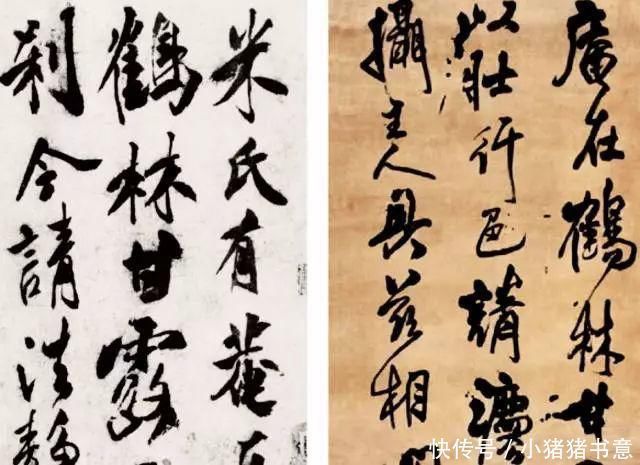 米氏有菴在
鶴林甘露
刹今請法
庵在鶴林甘
以壯行色請
攝主人具茲相
快传号/小猪猪书意